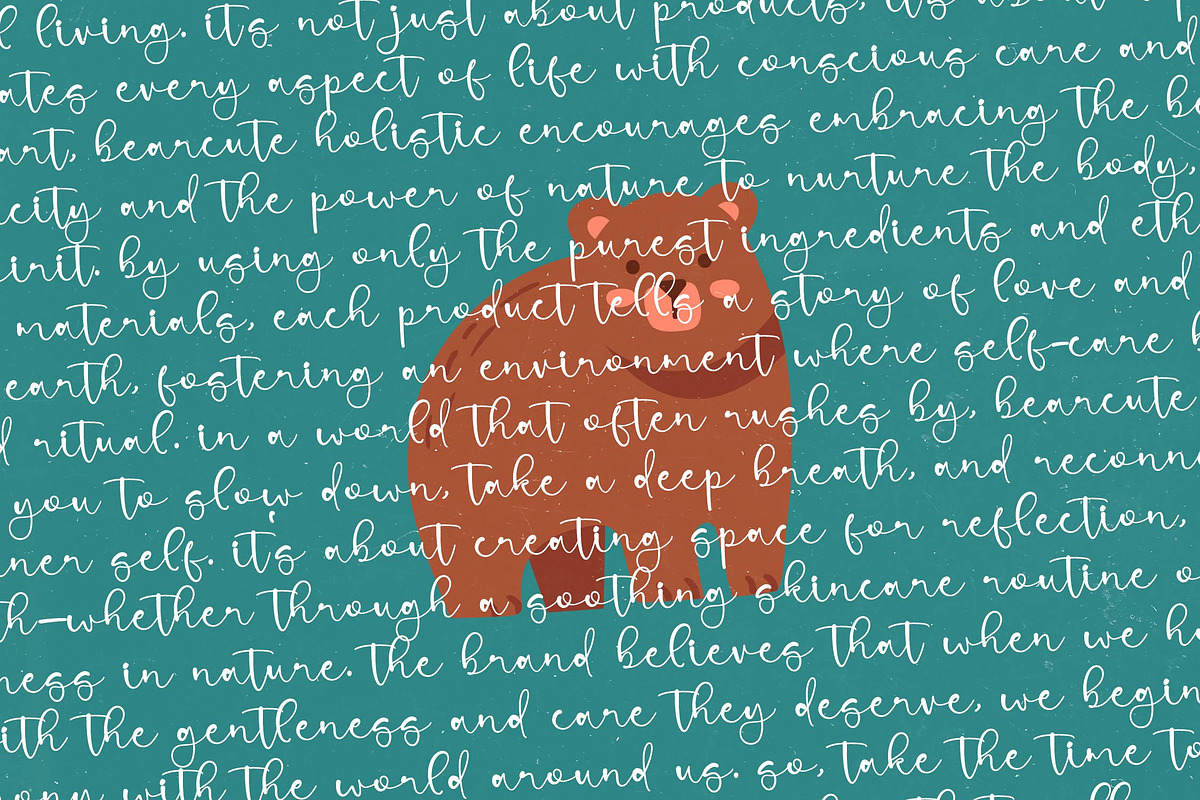 living. it's not just about products, it's about
every aspect of life with conscious care and
bearcute holistic encourages embracing the
and the power of nature to nurture the body,
by using only the purest ingredients and
materials, each product tells a story of love and
earth, fostering an environment where self-care
ritual. in a world that often rushes by, bearcute
you to slow down, take a deep breath, and
self. it's about creating space for reflection,
whether through a soothing skincare routine
in nature. the brand believes that when we
the gentleness and care they deserve, we begin
with the world around us. so, take the time to